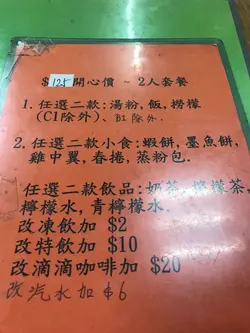 $125開心價~2人套餐
1. 任選二款:湯粉,飯,撈檬
(C1除外)、B1除外.
2. 任選二款小食:蝦餅,墨魚餅,
雞中翼,春捲,蒸粉包.
任選二款飲品:奶茶,檸檬茶
檸檬水,青檸檬水.
改凍飲加 $2
改特飲加 $10
改滴滴咖啡加 $20
改汽水加 $6